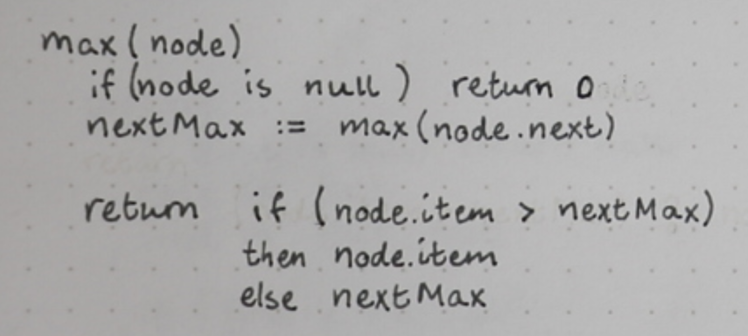 max(node)
if (node is null) return 0
nextMax := max(node.next)
return if (node.item > nextMax)
then node.item
else nextMax